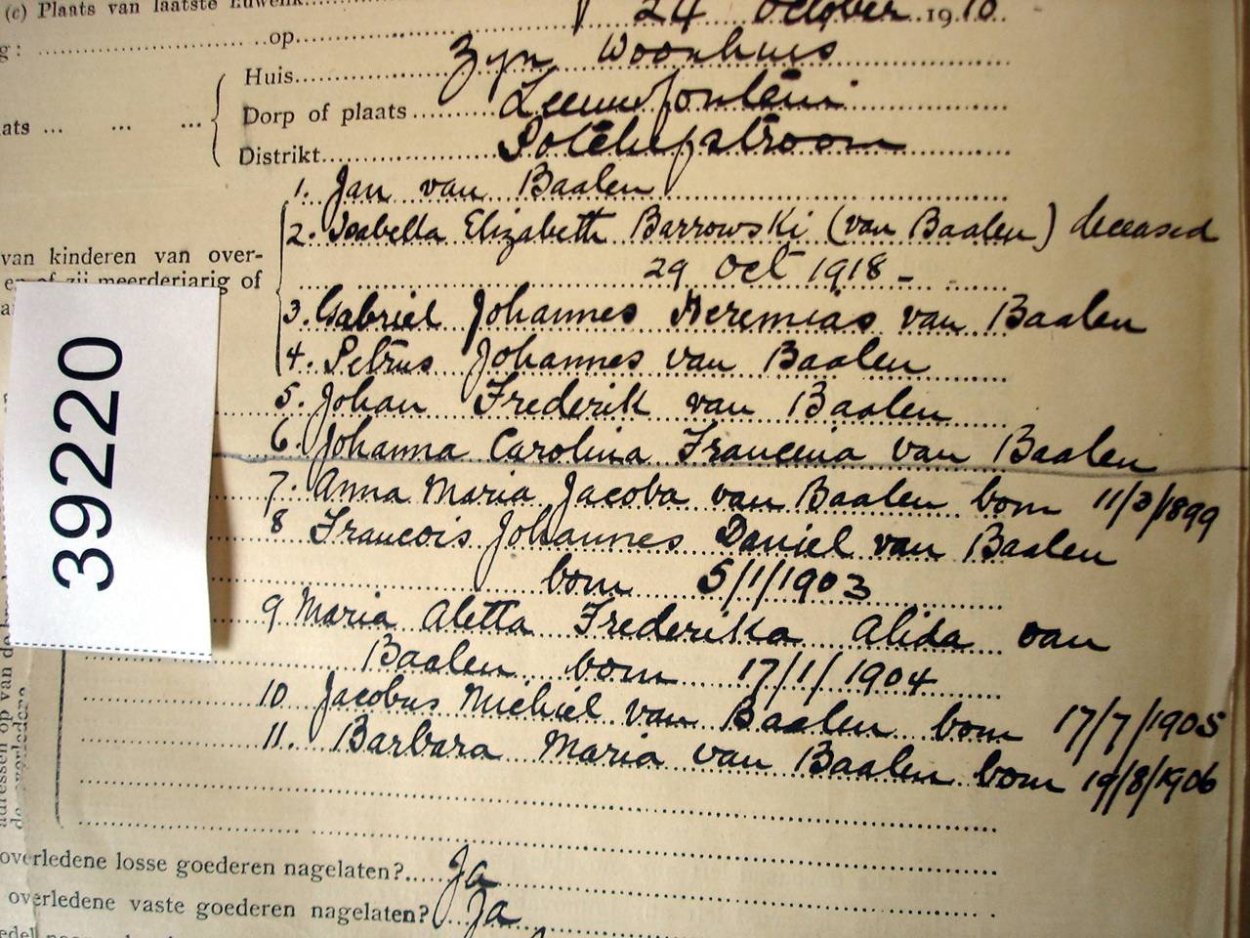 (c) Plaats van laatste Huwelik
24 October 1918
g: op
Huis Zyn Woonhuis
Dorp of plaats Leeuwfontein
ats ... ... ...
Distrikt Potchefstroom
1. Jan van Baalen
2. Isabella Elizabeth Barrowski (van Baalen) deceased
29 Oct 1918 -
van kinderen van over-
en of zij meerderjarig of
3. Gabriel Johannes Heremias van Baalen
4. Petrus Johannes van Baalen
5. Johan Frederik van Baalen
6. Johanna Carolina Francina van Baalen
7. Anna Maria Jacoba van Baalen born 11/3/1899
8 Francois Johannes Daniel van Baalen
born 5/1/1903
9 Maria Aletta Frederika Alida van
Baalen born 17/1/1904
10 Jacobus Michiel van Baalen born 17/7/1905
11. Barbara Maria van Baalen born 19/8/1906
39220
adressen op van de
overledene losse goederen nagelaten? Ja
overledene vaste goederen nagelaten? Ja